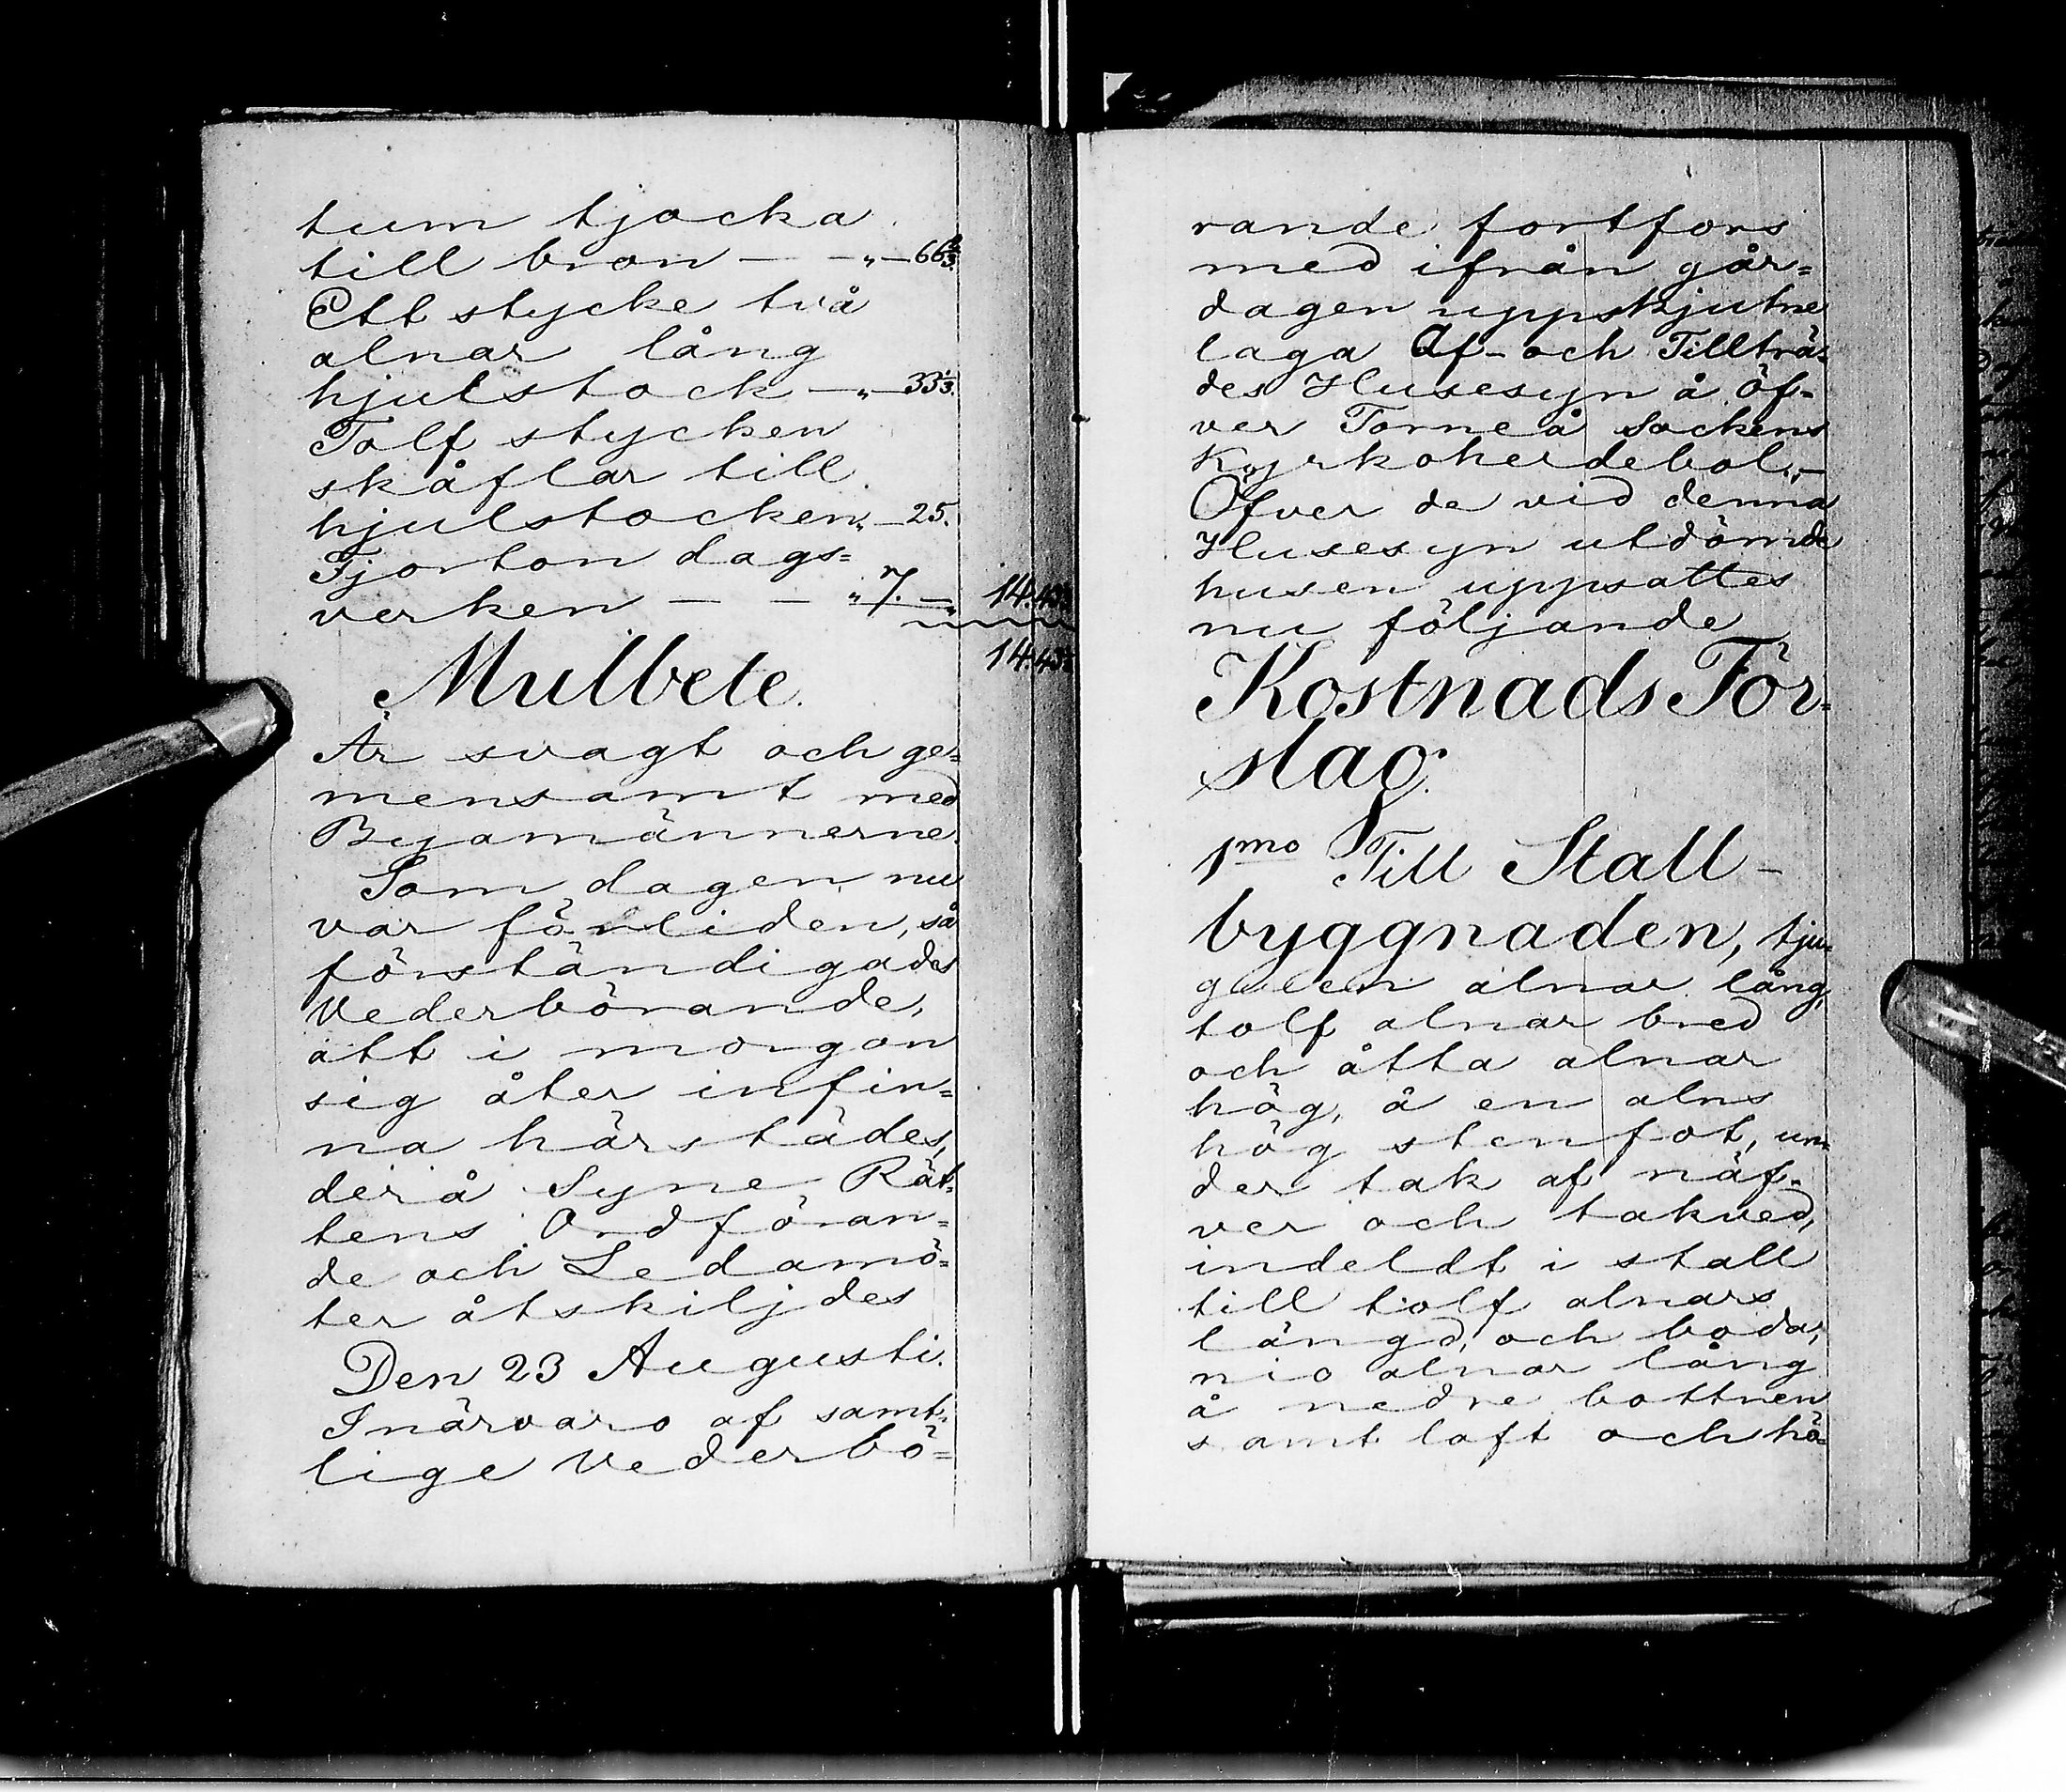 tum tjocka
till bron — — „ — 66 2/3.
Ett stycke två
alnar lång
hjulstock — „ — 33 1/3.
Tolf stycken
skåflar till
hjulstocken „ — 25.
Fjorton dags=
verken — — „ 7. — „ 14.
14.
Mulbete.
Är svagt och ge=
mensamt med
Byamännerne.
Som dagen nu
var förliden, så
förständigades
Vederbörande,
att i morgon
sig åter infin=
na härstädes,
derå Syne Rät=
tens Ordföran=
de och Ledamö=
ter åtskiljdes
Den 23 Augusti.
I närvaro af samt=
lige Vederbö=
rande fortfors
med ifrån går=
dagen uppskjutne
laga Af- och Tillträ=
des Husesyn å Öf=
ver Torneå Sockens
Kyrkoherdebol. —
Öfver de vid denna
Husesyn utdömde
husen uppsattes
nu följande
Kostnads För=
slag.
1mo Till Stall-
byggnaden, tju=
gueen alnar lång,
tolf alnar bred
och åtta alnar
hög, å en alns
hög stenfot, un=
der tak af näf=
ver och takved,
indeldt i stall
till tolf alnars
längd, och boda,
nio alnar lång
å nedre bottnen
samt loft och hö=